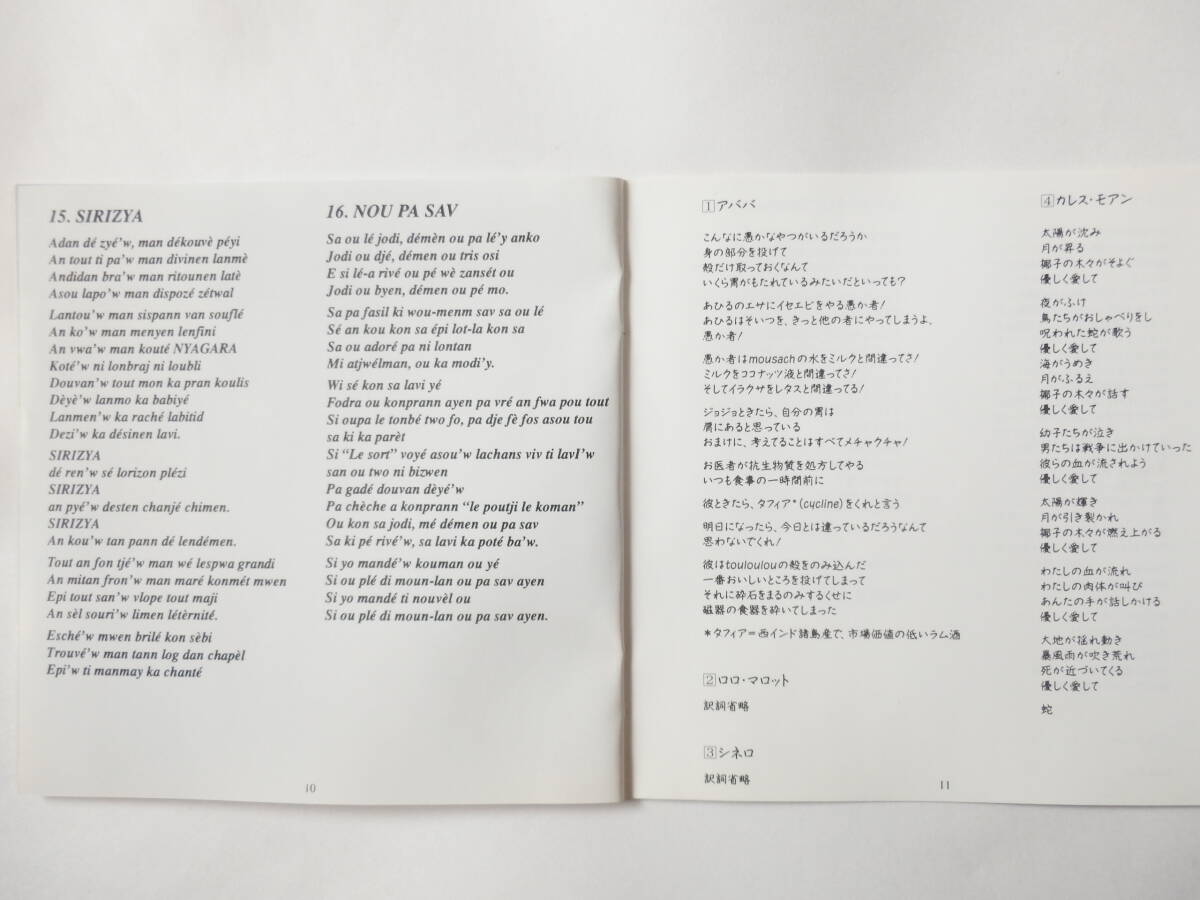 15. SIRIZYA
Adan dé zyé'w, man dékouvè péyi
An tout ti pa'w man divinen lanmè
Andidan bra'w man ritounen latè
Asou lapo'w man dispozé zétwal
Lantou'w man sispann van souflé
An ko'w man menyen lenfini
An vwa'w man kouté NYAGARA
Koté'w ni lonbraj ni loubli
Douvan'w tout mon ka pran koulis
Dèyè'w lanmo ka babiyé
Lanmen'w ka raché labitid
Dezi'w ka désinen lavi.
SIRIZYA
dé ren'w sé lorizon plézi
SIRIZYA
an pyé'w desten chanjé chimen.
SIRIZYA
An kou'w tan pann dé lendémen.
Tout an fon tjé'w man wé lespwa grandi
An mitan fron'w man maré konmét mwen
Epi tout san'w vlope tout maji
An sèl souri'w limen létèrnité.
Esché'w mwen brilé kon sèbi
Trouvé'w man tann log dan chapèl
Epi'w ti manmay ka chanté
10
16. NOU PA SAV
Sa ou lé jodi, démèn ou pa lé'y anko
Jodi ou djé, démen ou tris osi
E si lé-a rivé ou pé wè zansét ou
Jodi ou byen, démen ou pé mo.
Sa pa fasil ki wou-menm sav sa ou lé
Sé an kou kon sa épi lot-la kon sa
Sa ou adoré pa ni lontan
Mi atjwélman, ou ka modi'y.
Wi sé kon sa lavi yé
Fodra ou konprann ayen pa vré an fwa pou tout
Si oupa le tonbé two fo, pa dje fè fos asou tou
sa ki ka parèt
Si “Le sort” voyé asou'w lachans viv ti lavI'w
san ou two ni bizwen
Pa gadé douvan dèyé'w
Pa chèche a konprann “le poutji le koman”
Ou kon sa jodi, mé démen ou pa sav
Sa ki pé rivé'w, sa lavi ka poté ba'w.
Si yo mandé'w kouman ou yé
Si ou plé di moun-lan ou pa sav ayen
Si yo mandé ti nouvèl ou
Si ou plé di moun-lan ou pa sav ayen.
1アババ
こんなに愚かなやつがいるだろうか
身の部分を投げて
殻だけ取っておくなんて
いくら胃がもたれているみたいだといっても?
あひるのエサにイセエビをやる愚か者!
あひるはそいつを、きっと他の者にやってしまうよ、
愚か者!
愚か者はmousachの水をミルクと間違ってさ!
ミルクをココナッツ液と間違ってさ!
そしてイラクサをレタスと間違ってる!
ジョジョときたら、自分の胃は
肩にあると思っている
おまけに、考えてることはすべてメチャクチャ!
お医者が抗生物質を処方してやる
いつも食事の一時間前に
彼ときたら、タフィア*(cycline)をくれと言う
明日になったら、今日とは違っているだろうなんて
思わないでくれ!
彼はtouloulouの殻をのみ込んだ
一番おいしいところを投げてしまって
それに砕石をまるのみするくせに
磁器の食器を砕いてしまった
*タフィア=西インド諸島産で、市場価値の低いラム酒
2ロロ・マロット
訳詞省略
3シネロ
訳詞省略
11
4カレス・モアン
太陽が沈み
月が昇る
椰子の木々がそよぐ
優しく愛して
夜がふけ
鳥たちがおしゃべりをし
呪われた蛇が歌う
優しく愛して
海がうめき
月がふるえ
椰子の木々が話す
優しく愛して
幼子たちが泣き
男たちは戦争に出かけていった
彼らの血が流されよう
優しく愛して
太陽が輝き
月が引き裂かれ
椰子の木々が燃え上がる
優しく愛して
わたしの血が流れ
わたしの肉体が叫び
あんたの手が話しかける
優しく愛して
大地が揺れ動き
暴風雨が吹き荒れ
死が近づいてくる
優しく愛して
蛇